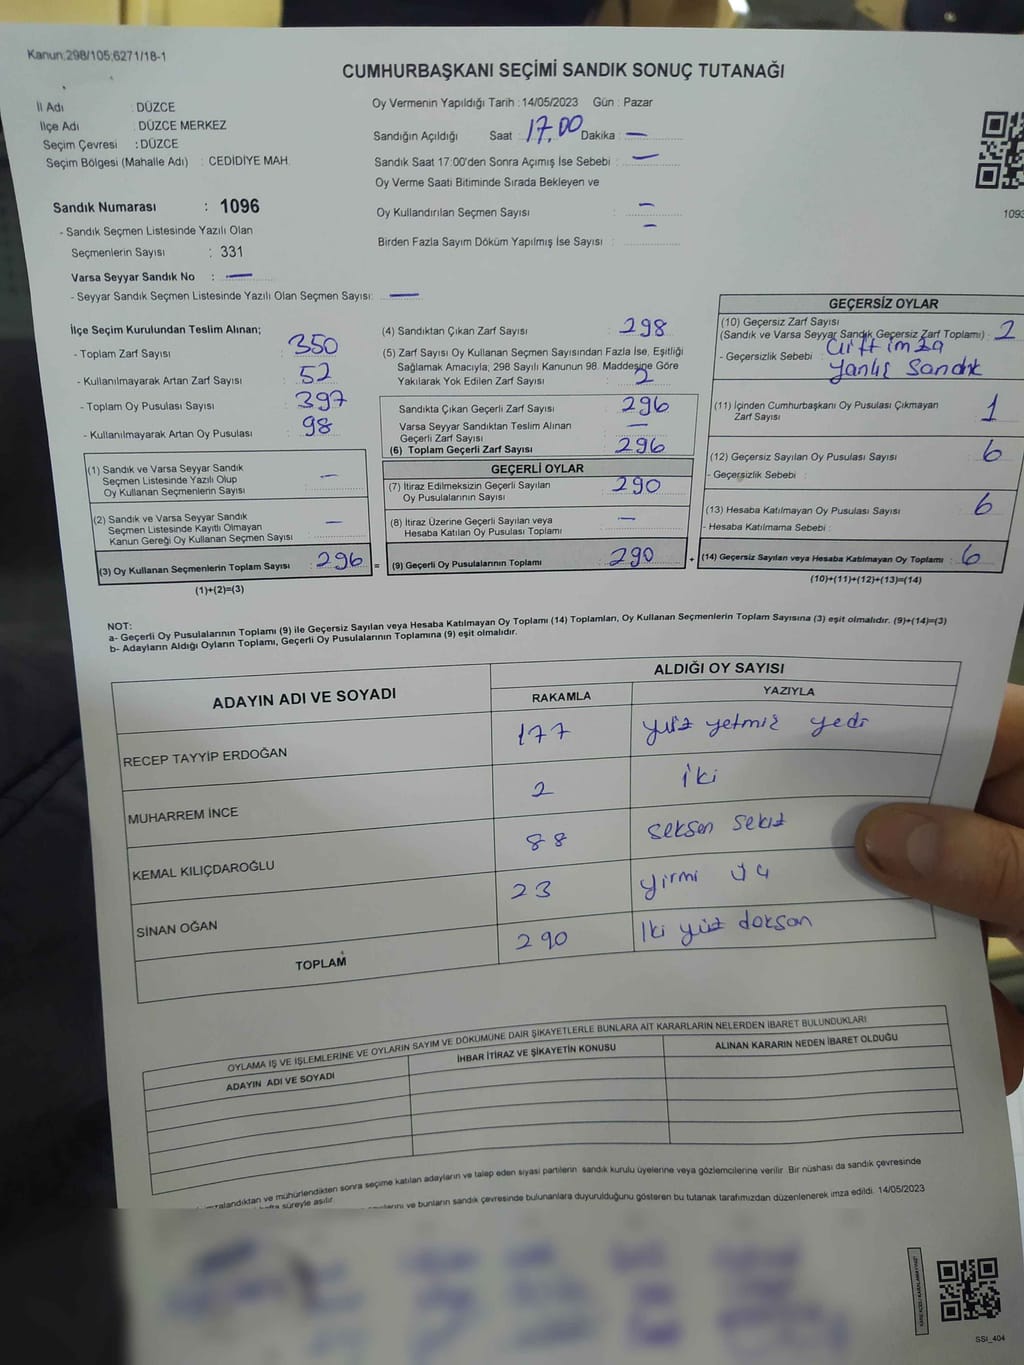 Kanun:298/105;6271/18-1
CUMHURBAŞKANI SEÇİMİ SANDIK SONUÇ TUTANAĞI
İl Adı : DÜZCE
İlçe Adı : DÜZCE MERKEZ
Seçim Çevresi : DÜZCE
Seçim Bölgesi (Mahalle Adı) : CEDİDİYE MAH.
Sandık Numarası : 1096
- Sandık Seçmen Listesinde Yazılı Olan
Seçmenlerin Sayısı : 331
Varsa Seyyar Sandık No : —
- Seyyar Sandık Seçmen Listesinde Yazılı Olan Seçmen Sayısı: —
Oy Vermenin Yapıldığı Tarih : 14/05/2023 Gün : Pazar
Sandığın Açıldığı Saat 17.00 Dakika : —
Sandık Saat 17:00'den Sonra Açımış İse Sebebi : —
Oy Verme Saati Bitiminde Sırada Bekleyen ve
Oy Kullandırılan Seçmen Sayısı : —
Birden Fazla Sayım Döküm Yapılmış İse Sayısı : —
1093
İlçe Seçim Kurulundan Teslim Alınan;
- Toplam Zarf Sayısı : 350
- Kullanılmayarak Artan Zarf Sayısı : 52
- Toplam Oy Pusulası Sayısı : 397
- Kullanılmayarak Artan Oy Pusulası : 98
(1) Sandık ve Varsa Seyyar Sandık
Seçmen Listesinde Yazılı Olup
Oy Kullanan Seçmenlerin Sayısı : —
(2) Sandık ve Varsa Seyyar Sandık
Seçmen Listesinde Kayıtlı Olmayan
Kanun Gereği Oy Kullanan Seçmen Sayısı : —
(3) Oy Kullanan Seçmenlerin Toplam Sayısı : 296 =
(1)+(2)=(3)
(4) Sandıktan Çıkan Zarf Sayısı : 298
(5) Zarf Sayısı Oy Kullanan Seçmen Sayısından Fazla İse, Eşitliği
Sağlamak Amacıyla; 298 Sayılı Kanunun 98. Maddesine Göre
Yakılarak Yok Edilen Zarf Sayısı : 2
Sandıkta Çıkan Geçerli Zarf Sayısı : 296
Varsa Seyyar Sandıktan Teslim Alınan
Geçerli Zarf Sayısı : —
(6) Toplam Geçerli Zarf Sayısı : 296
GEÇERLİ OYLAR
(7) İtiraz Edilmeksizin Geçerli Sayılan
Oy Pusulalarının Sayısı : 290
(8) İtiraz Üzerine Geçerli Sayılan veya
Hesaba Katılan Oy Pusulası Toplamı : —
(9) Geçerli Oy Pusulalarının Toplamı : 290 +
GEÇERSİZ OYLAR
(10) Geçersiz Zarf Sayısı
(Sandık ve Varsa Seyyar Sandık Geçersiz Zarf Toplamı) : 2
- Geçersizlik Sebebi : Çift imza
Yanlış Sandık
(11) İçinden Cumhurbaşkanı Oy Pusulası Çıkmayan
Zarf Sayısı : 1
(12) Geçersiz Sayılan Oy Pusulası Sayısı : 6
- Geçersizlik Sebebi :
(13) Hesaba Katılmayan Oy Pusulası Sayısı : 6
- Hesaba Katılmama Sebebi :
(14) Geçersiz Sayılan veya Hesaba Katılmayan Oy Toplamı : 6
(10)+(11)+(12)+(13)=(14)
NOT:
a- Geçerli Oy Pusulalarının Toplamı (9) ile Geçersiz Sayılan veya Hesaba Katılmayan Oy Toplamı (14) Toplamları, Oy Kullanan Seçmenlerin Toplam Sayısına (3) eşit olmalıdır. (9)+(14)=(3)
b- Adayların Aldığı Oyların Toplamı, Geçerli Oy Pusulalarının Toplamına (9) eşit olmalıdır.
ADAYIN ADI VE SOYADI ALDIĞI OY SAYISI
RAKAMLA YAZIYLA
RECEP TAYYİP ERDOĞAN 177 yüz yetmiş yedi
MUHARREM İNCE 2 iki
KEMAL KILIÇDAROĞLU 88 seksen sekiz
SİNAN OĞAN 23 yirmi üç
TOPLAM 290 İki yüz doksan
OYLAMA İŞ VE İŞLEMLERİNE VE OYLARIN SAYIM VE DÖKÜMÜNE DAİR ŞİKAYETLERLE BUNLARA AİT KARARLARIN NELERDEN İBARET BULUNDUKLARI
ADAYIN ADI VE SOYADI İHBAR İTİRAZ VE ŞİKAYETİN KONUSU ALINAN KARARIN NEDEN İBARET OLDUĞU
imzalandıktan ve mühürlendikten sonra seçime katılan adayların ve talep eden siyasi partilerin sandık kurulu üyelerine veya gözlemcilerine verilir. Bir nüshası da sandık çevresinde
hafta süreyle asılır.
ve bunların sandık çevresinde bulunanlara duyurulduğunu gösteren bu tutanak tarafımızdan düzenlenerek imza edildi. 14/05/2023
SSI_404